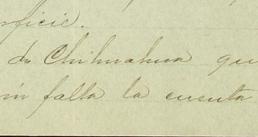 rficie.
de Chihuahua qu
in falta la cuenta